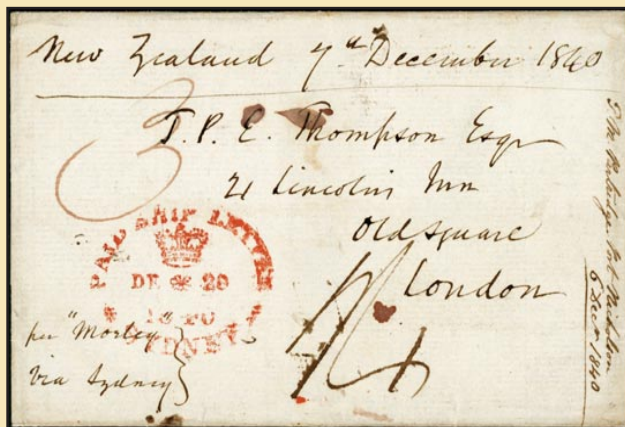 New Zealand 7th December 1840
T. P. E. Thompson Esqr
21 Lincoln's Inn
Old Square
London
3
PAID SHIP LETTER
DE 29
1840
SYDNEY
per "Morley"
Via Sydney
Port Nicholson
6 Decr 1840